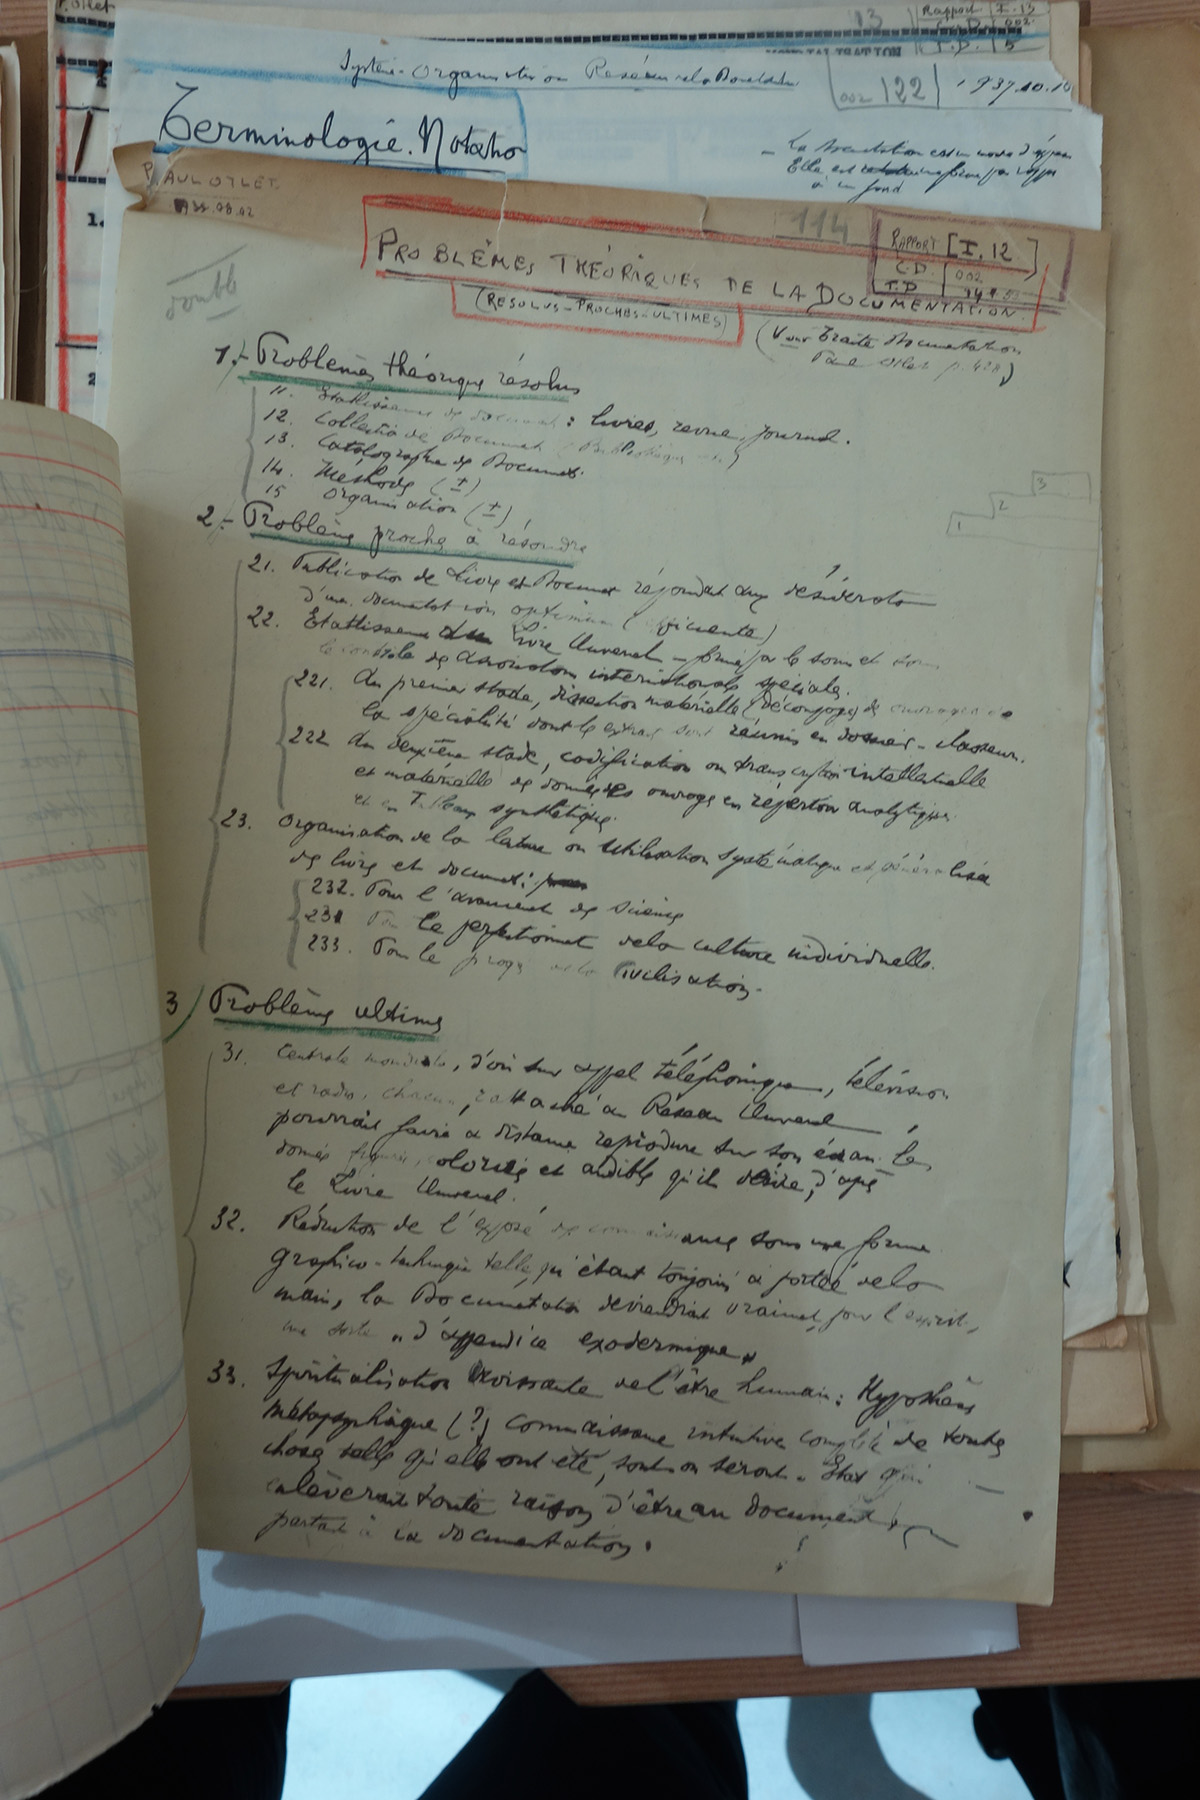 P. Otlet
13
Rapport I-13
C.D. 002
T.D. 5
Système - Organisation Réseau de la Documentation
002 122 1937.10.10
Terminologie. Notation
La documentation est un mode d'
Elle est
à un fond
PAUL OTLET
08.02
double
114
RAPPORT [I.12]
C.D. 002
T.D
PROBLÊMES THÉORIQUES DE LA DOCUMENTATION
(RESOLUS - PROCHES - ULTIMES)
(Voir Traité Documentation
Paul Otlet p. 428)
1.- Problèmes théoriques résolus
11. Etablissement de document : livres, revue, journal.
12. Collection de Documents (Bibliothèque)
13. Catalographie de Documents
14. Méthode (±)
15 Organisation (±)
1 2 3
2.- Problème proche à résoudre
21. Publication de Livre et Document répondant aux desiderata
d'une documentation optimum (efficiente)
22. Etablissement du Livre Universel - formé par le soin et sous
le contrôle des associations internationales spéciales.
221. Au premier stade, dissection matérielle (découpage) de ouvrages de
la spécialité dont les extraits sont réunis en dossiers - classeurs.
222 Au deuxième stade, codification ou transcription intellectuelle
et matérielle des données des ouvrages en répertoire analytique
et en Tableau synthétique.
23. Organisation de la lecture ou utilisation systématique et généralisée
de livre et document:
232. Pour l'avancement des sciences
231 Pour le perfectionnement de la culture individuelle.
233. Pour le progrès de la civilisation.
3 Problème ultime
31. Centrale mondiale, d'où sur appel téléphonique, télévision
et radio, chacun, rattaché au Réseau Universel
pourrait faire à distance reproduire sur son écran les
données figurées, coloriées et audibles qu'il désire, d'après
le Livre Universel.
32. Réduction de l'exposé des connaissances sous une forme
graphico-technique telle, qu'étant toujours à portée de la
main, la Documentation deviendrait vraiment pour l'esprit,
une sorte "d'appendice exodermique"
33. Spiritualisation croissante de l'être humain: Hypothèse
métapsychique (?) connaissance intuitive complète de toutes
choses telles qu'elles ont été, sont ou seront. Etat qui
enlèverait toute raison d'être au document,
partant à la documentation.